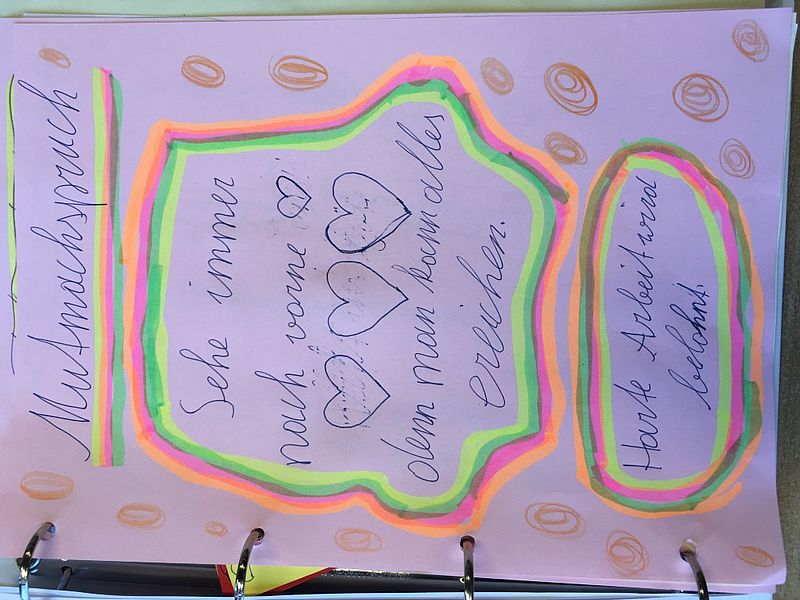 Mutmachspruch
Sehe immer
nach vorne
denn man kann alles
ereichen.
Harte Arbeit wird
belohnt.